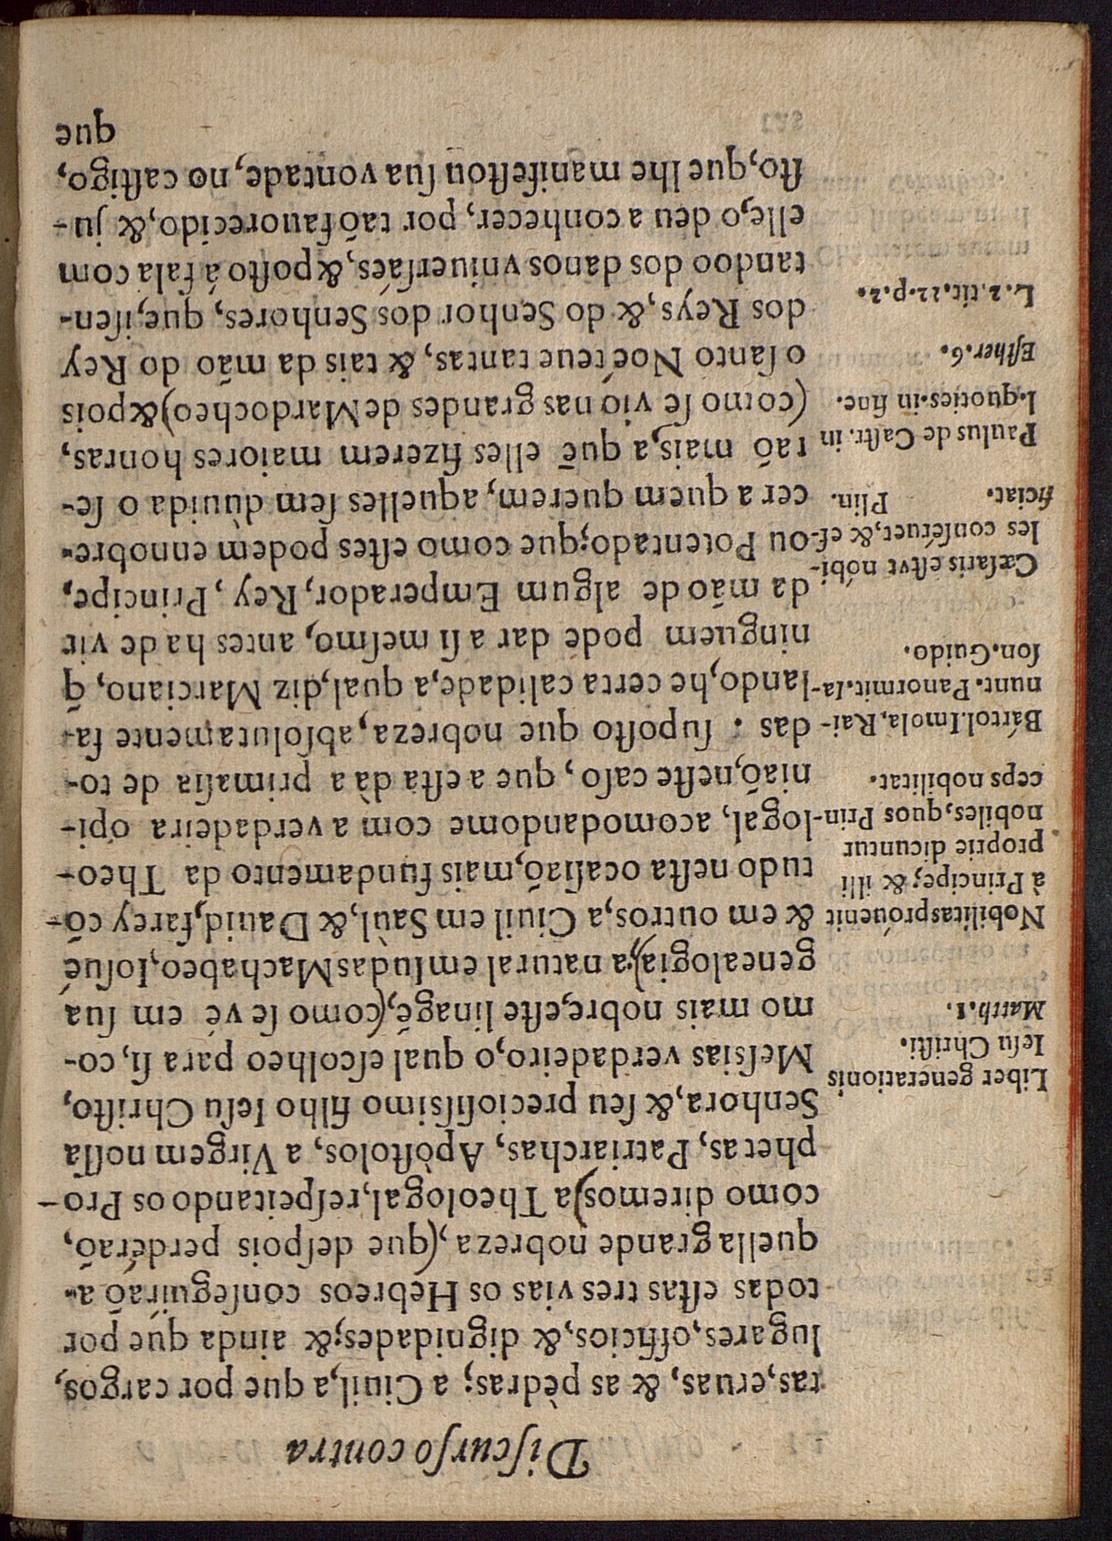 Diſcurſo contra
tas, eruas, & as pèdras; a Ciuil, a que por cargos,
lugares, officios, & dignidades; & ainda que por
todas eſtas tres vias os Hebreos conſeguiraõ a-
quella grande nobreza, (que deſpois perdéraõ,
como diremos) a Theologal, reſpeitando os Pro-
phetas, Patriarchas, Apòſtolos, a Virgem noſſa
Senhora, & ſeu precioſiſsimo filho Ieſu Chriſto,
Meſsias verdadeiro, o qual eſcolheo para ſi, co-
mo mais nobre, eſte linagē, (como ſe vé em ſua
genealogia) a natural em Iudas Machabeo, Ioſué
& em outros, a Ciuil em Saùl, & Dauid, farey cō-
tudo neſta ocaſiaõ, mais fundamento da Theo-
logal, acomodandome com a verdadeira opi-
niaõ, neſte caſo, que a eſta dà a primaſia de to-
das: ſupoſto que nobreza, abſolutamente fa-
lando, he certa calidade, a qual, diz Marciano, q̃
ninguem póde dar a ſi meſmo, antes ha de vir
da mão de algum Emperador, Rey, Principe,
ou Potentado; que como eſtes podem ennobre-
cer a quem querem, aquelles ſem dùuida o ſe-
raõ mais, a quē elles fizerem maiores honras,
(como ſe vio nas grandes de Mardocheo) & pois
o ſanto Noé teue tantas, & tais da mão do Rey
dos Reys, & do Senhor dos Senhores, que, iſen-
tandoo dos danos vniuerſaes, & poſto á fala com
elle, o deu a conhecer, por taõ fauorecido, & ju-
ſto, que lhe manifeſtou ſua vontade, no caſtigo,
que
Liber generationis
Ieſu Chriſti.
Matth. 1.
Nobilitas próuenit
à Principe; & illi
proprie dicuntur
nobiles, quos Prin-
ceps nobilitat.
Bártol. Imola, Rai-
nunt. Panormit. Ia-
ſon. Guido.
Cæſaris eſt vt nobi-
les conſéruet, & ef-
ficiat. Plin.
Paulus de Caſtr. in
l. quoties. in fine.
Eſther. 6.
L. 2. tit. 22. p. 2.